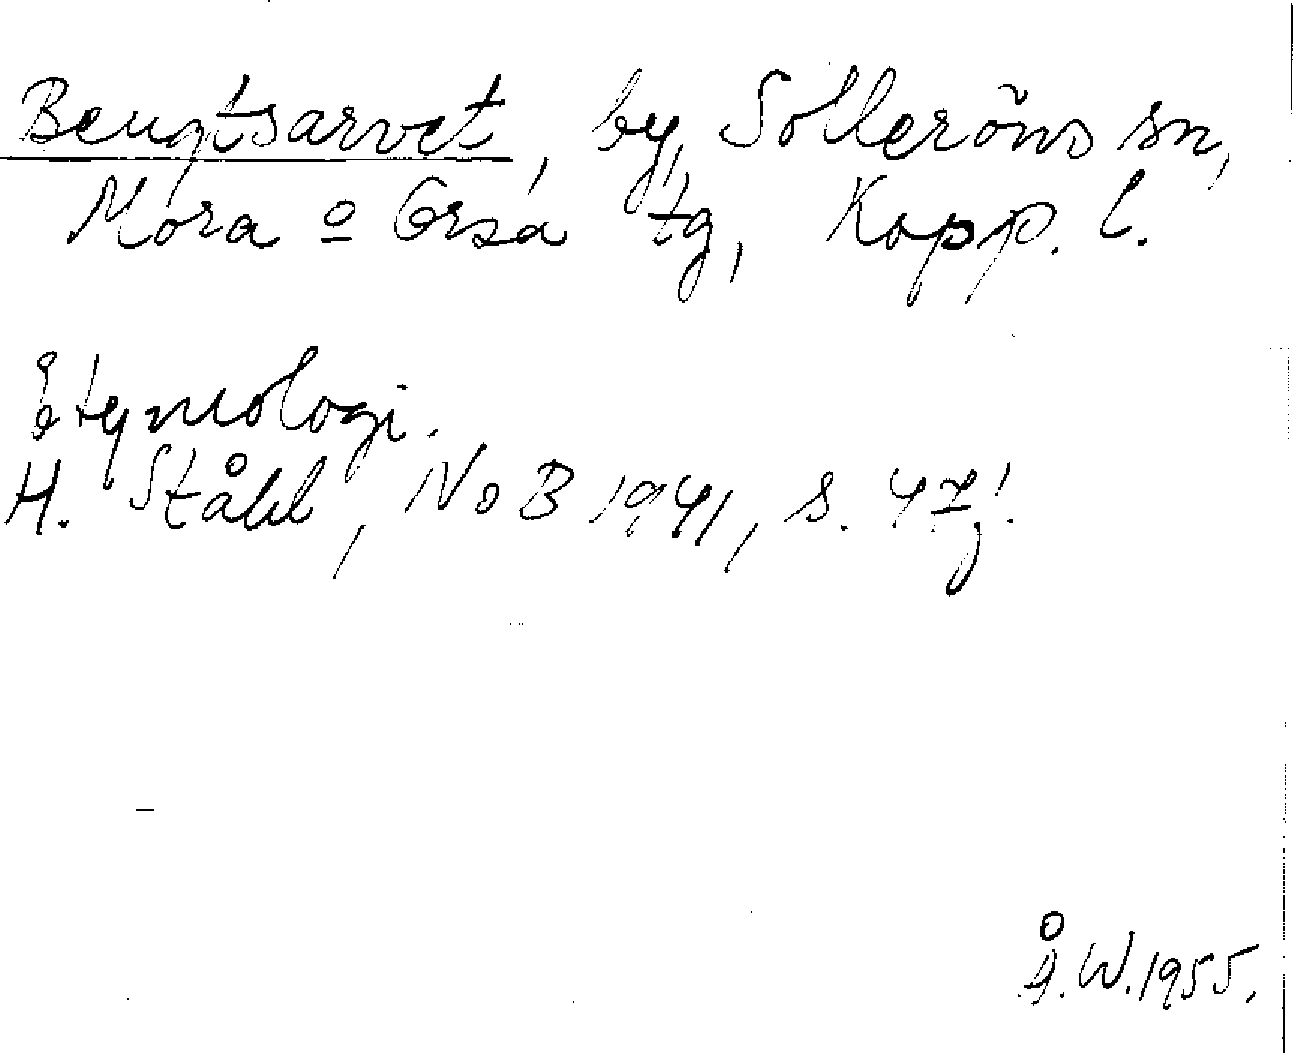 Bengtsarvet, by, Solleröns sn,
Mora o Orsa tg, Kopp. l.
Etymologi.
H. Ståhl, NoB 1941, s. 47!
Å.W. 1955.